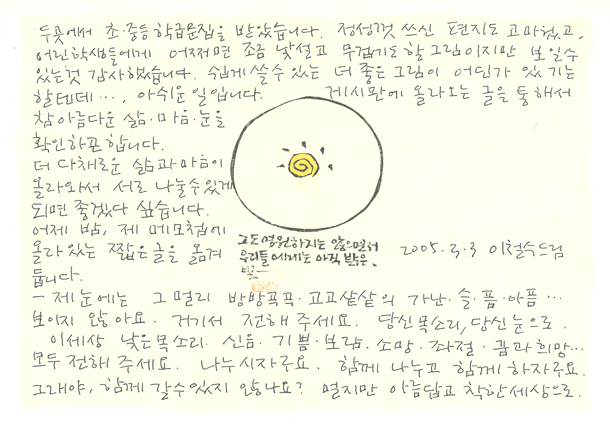 두곳에서 초·중등 학급문집을 받았습니다. 정성껏 쓰신 편지도 고마웠고,
어린학생들에게 어쩌면 조금 낯설고 무겁기도 할 그림이지만 보일수
있는것 감사했습니다. 쉽게 쓸수 있는 더 좋은 그림이 어딘가 있기는
할텐데···, 아쉬운 일입니다. 게시판에 올라오는 글을 통해서
참 아름다운 삶·마음·눈을
확인하곤 합니다.
더 다채로운 삶과 마음이
올라와서 서로 나눌수 있게
되면 좋겠다 싶습니다.
어제 밤, 제 메모첩에
올라있는 짧은 글을 옮겨
둡니다.
그도 영원하지는 않으면서
우리들에게는 아직 밝은.
2005.3.3 이철수드림
— 제 눈에는 그 멀리 방방곡곡·고고샅샅의 가난·슬·픔·아픔···
보이지 않아요. 거기서 전해 주세요. 당신 목소리, 당신 눈으로.
이세상 낮은 목소리. 신음·기쁨·보람·소망·좌절·꿈과 희망···
모두 전해 주세요. 나누시자구요. 함께 나누고 함께 하자구요.
그래야, 함께 갈수 있지 않나요? 멀지만 아름답고 착한 세상으로.